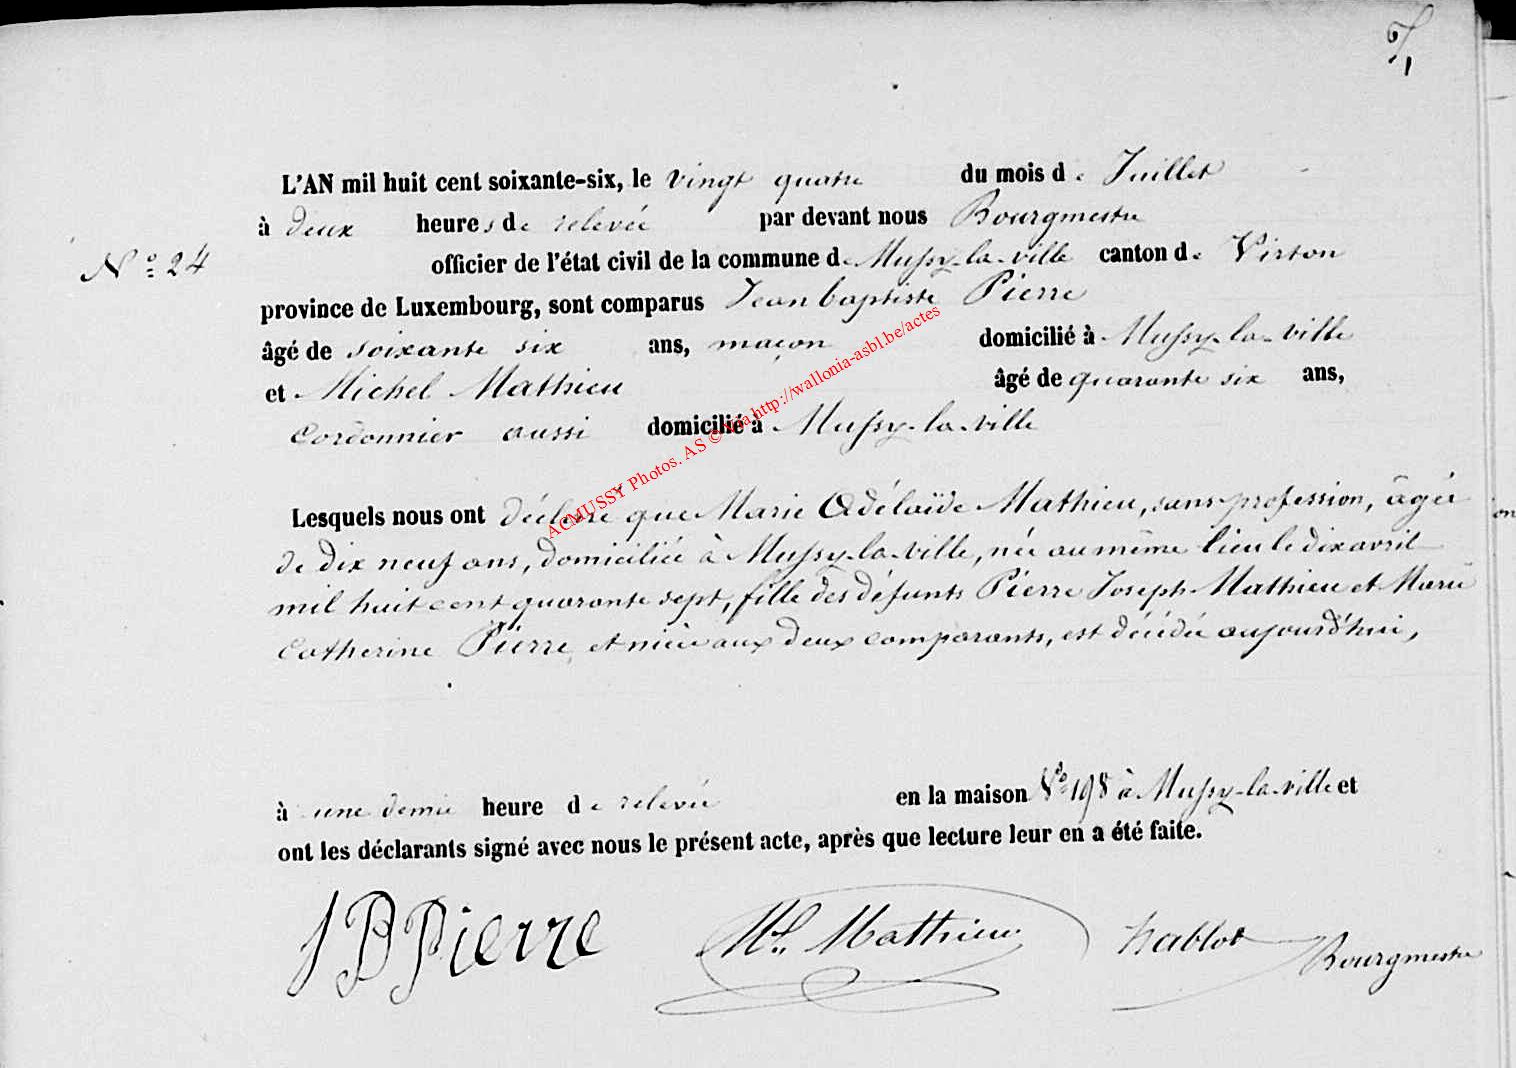 L'AN mil huit cent soixante-six, le vingt quatre du mois de Juillet
à deux heures de relevée par devant nous Bourgmestre
N° 24
officier de l'état civil de la commune de Mussy-la-ville canton de Virton
province de Luxembourg, sont comparus Jean baptiste Pierre
âgé de soixante six ans, maçon domicilié à Mussy-la-ville
et Michel Mathieu âgé de quarante six ans,
Cordonnier aussi domicilié à Mussy-la-ville
ACMUSSY Photos. AS © http://wallonia-asbl.be/actes
Lesquels nous ont déclaré que Marie Adélaïde Mathieu, sans profession, âgée
de dix neuf ans, domiciliée à Mussy-la-ville, née au même lieu le dix avril
mil huit cent quarante sept, fille des défunts Pierre Joseph Mathieu et Marie
Catherine Pierre, et nièce aux deux comparants, est décédée aujourd'hui,
à une demie heure de relevée en la maison N° 198 à Mussy-la-ville et
ont les déclarants signé avec nous le présent acte, après que lecture leur en a été faite.
JB Pierre Ml. Mathieu hablot Bourgmestre